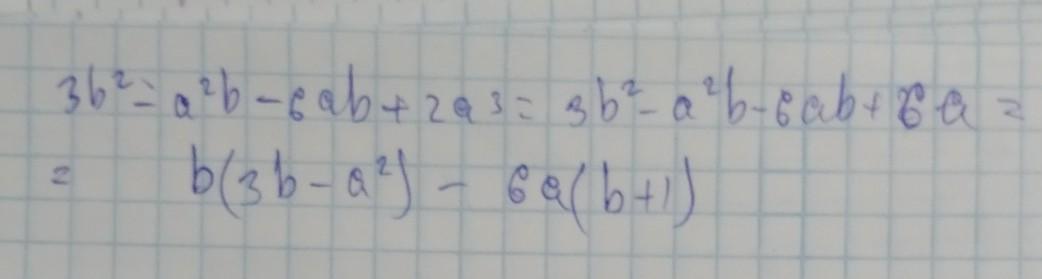 3b² - a²b - 6ab + 2a3 = 3b² - a²b - 6ab + 6a =
= b(3b - a²) - 6a(b+1)